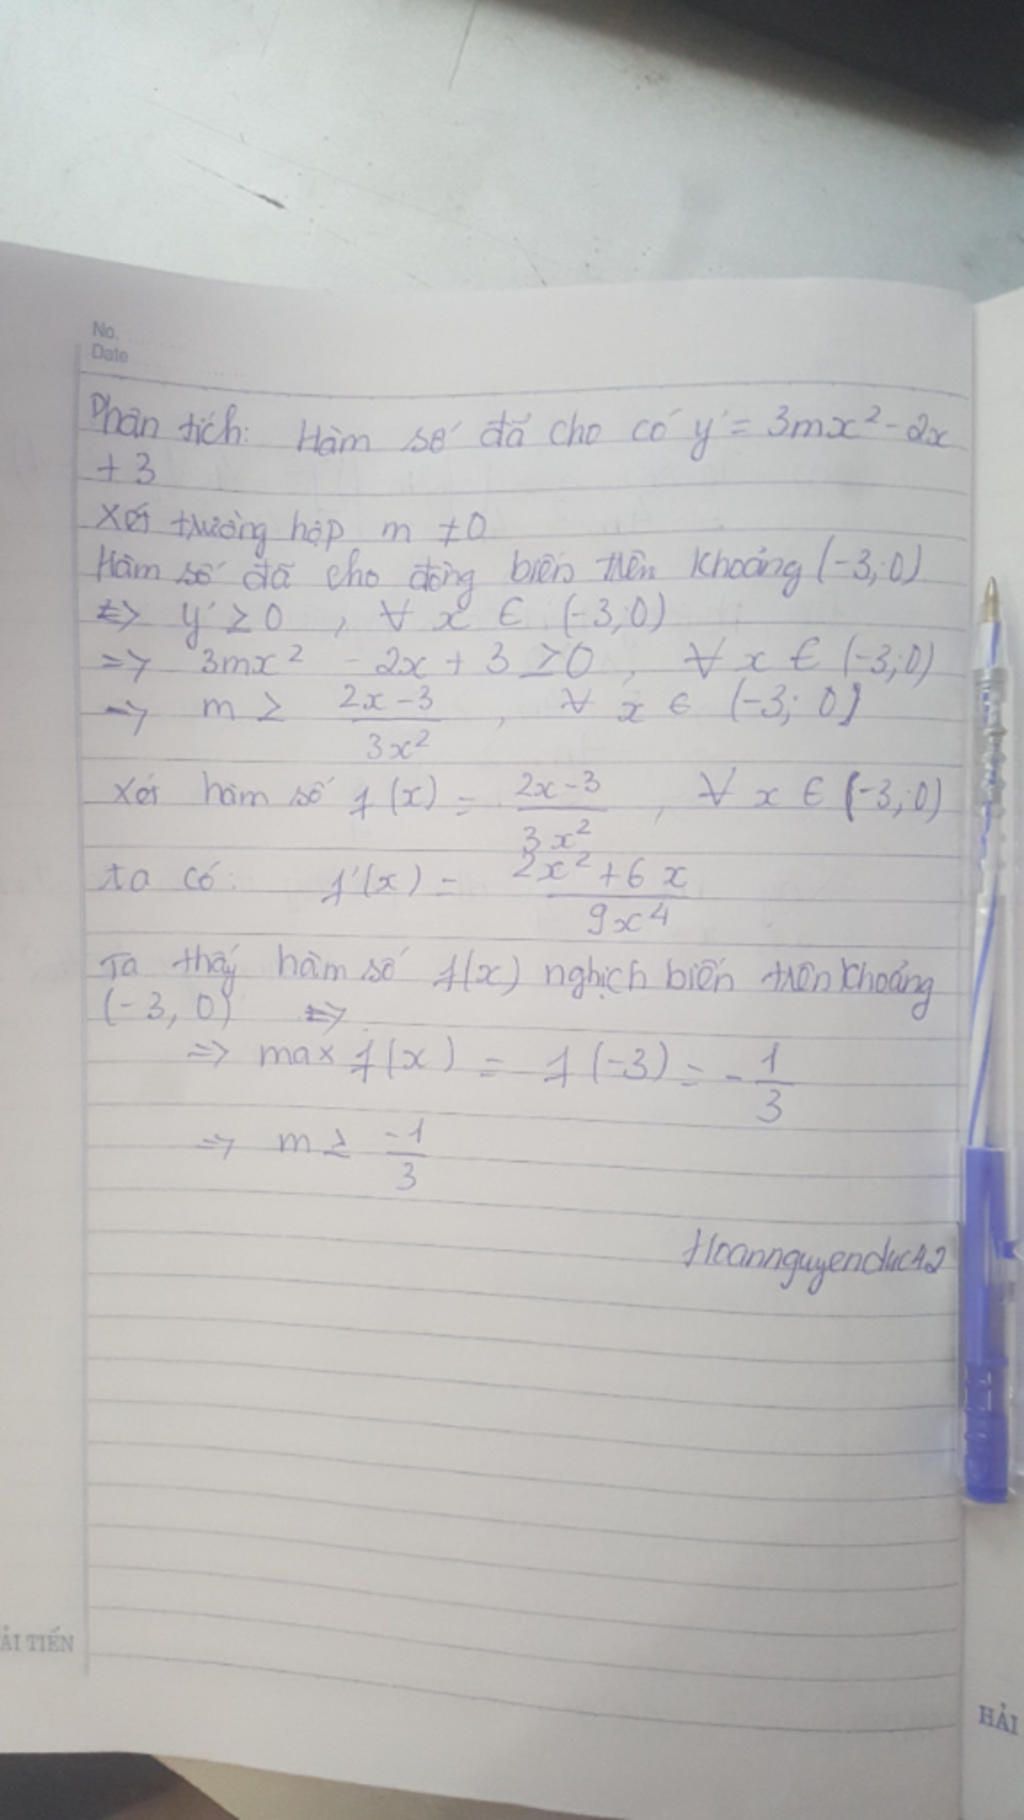 No.
Date
Phân tích: Hàm số đã cho có y' = 3mx² - 2x
+ 3
Xét trường hợp m ≠ 0
Hàm số đã cho đồng biến trên khoảng (-3; 0)
<=> y' ≥ 0 , ∀ x ∈ (-3; 0)
=> 3mx² - 2x + 3 ≥ 0 , ∀ x ∈ (-3; 0)
=> m ≥ (2x - 3)/(3x²) , ∀ x ∈ (-3; 0)
Xét hàm số f(x) = (2x - 3)/(3x²) , ∀ x ∈ (-3; 0)
ta có: f'(x) = (2x² + 6x)/(9x⁴)
Ta thấy hàm số f(x) nghịch biến trên khoảng
(-3, 0) =>
=> max f(x) = f(-3) = -1/3
=> m ≥ -1/3
Hoannguyenduc42
ẢI TIẾN
HẢI